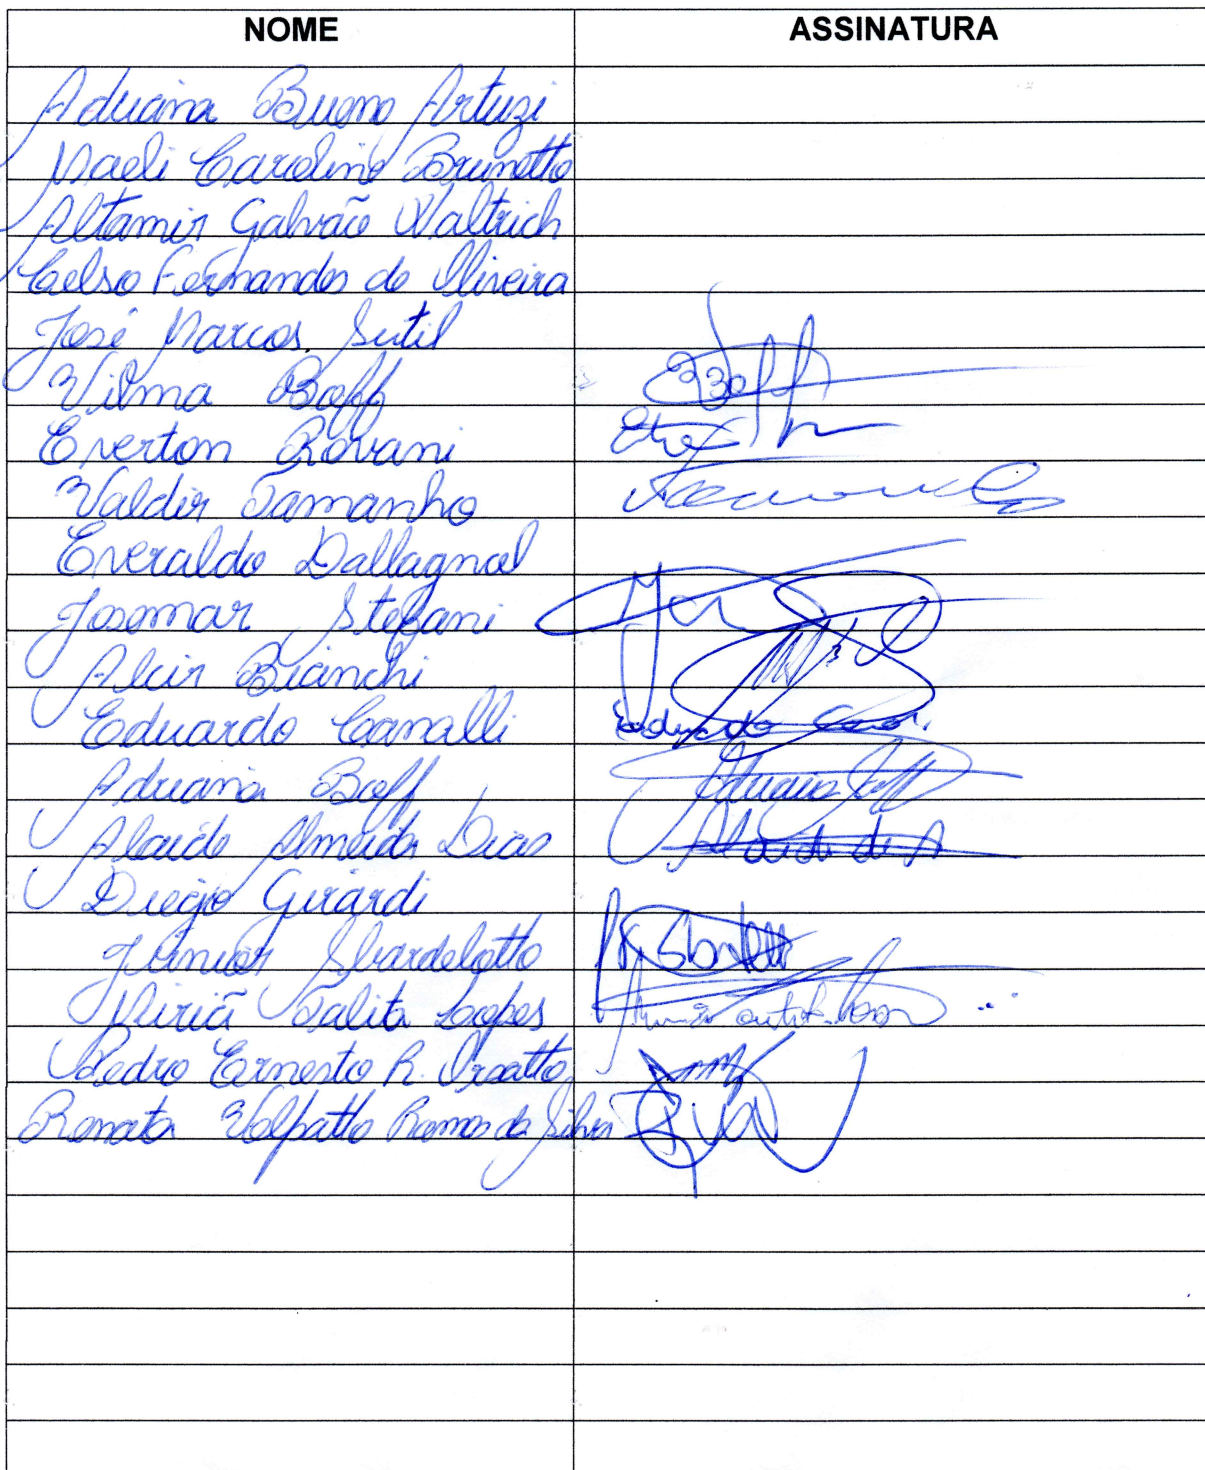 NOME ASSINATURA
Adriana Bueno Artuzi
Maeli Caroline Brunetto
Altamir Galvão Waltrich
Celso Fernandes de Oliveira
José Marcos Sutil
Vilma Boff
Everton Rovani
Valdir Tamanho
Everaldo Dallagnol
Josemar Stefani
Alcir Bianchi
Eduardo Canalli Eduardo
Adriana Boff Adriana Boff
Alaide Almeida Dias Alaide de A
Diego Girardi
Júnior Sbardelotto
Miriã Talita Lopes
Pedro Ernesto R.
Renata Volpatto Ramos da Silva